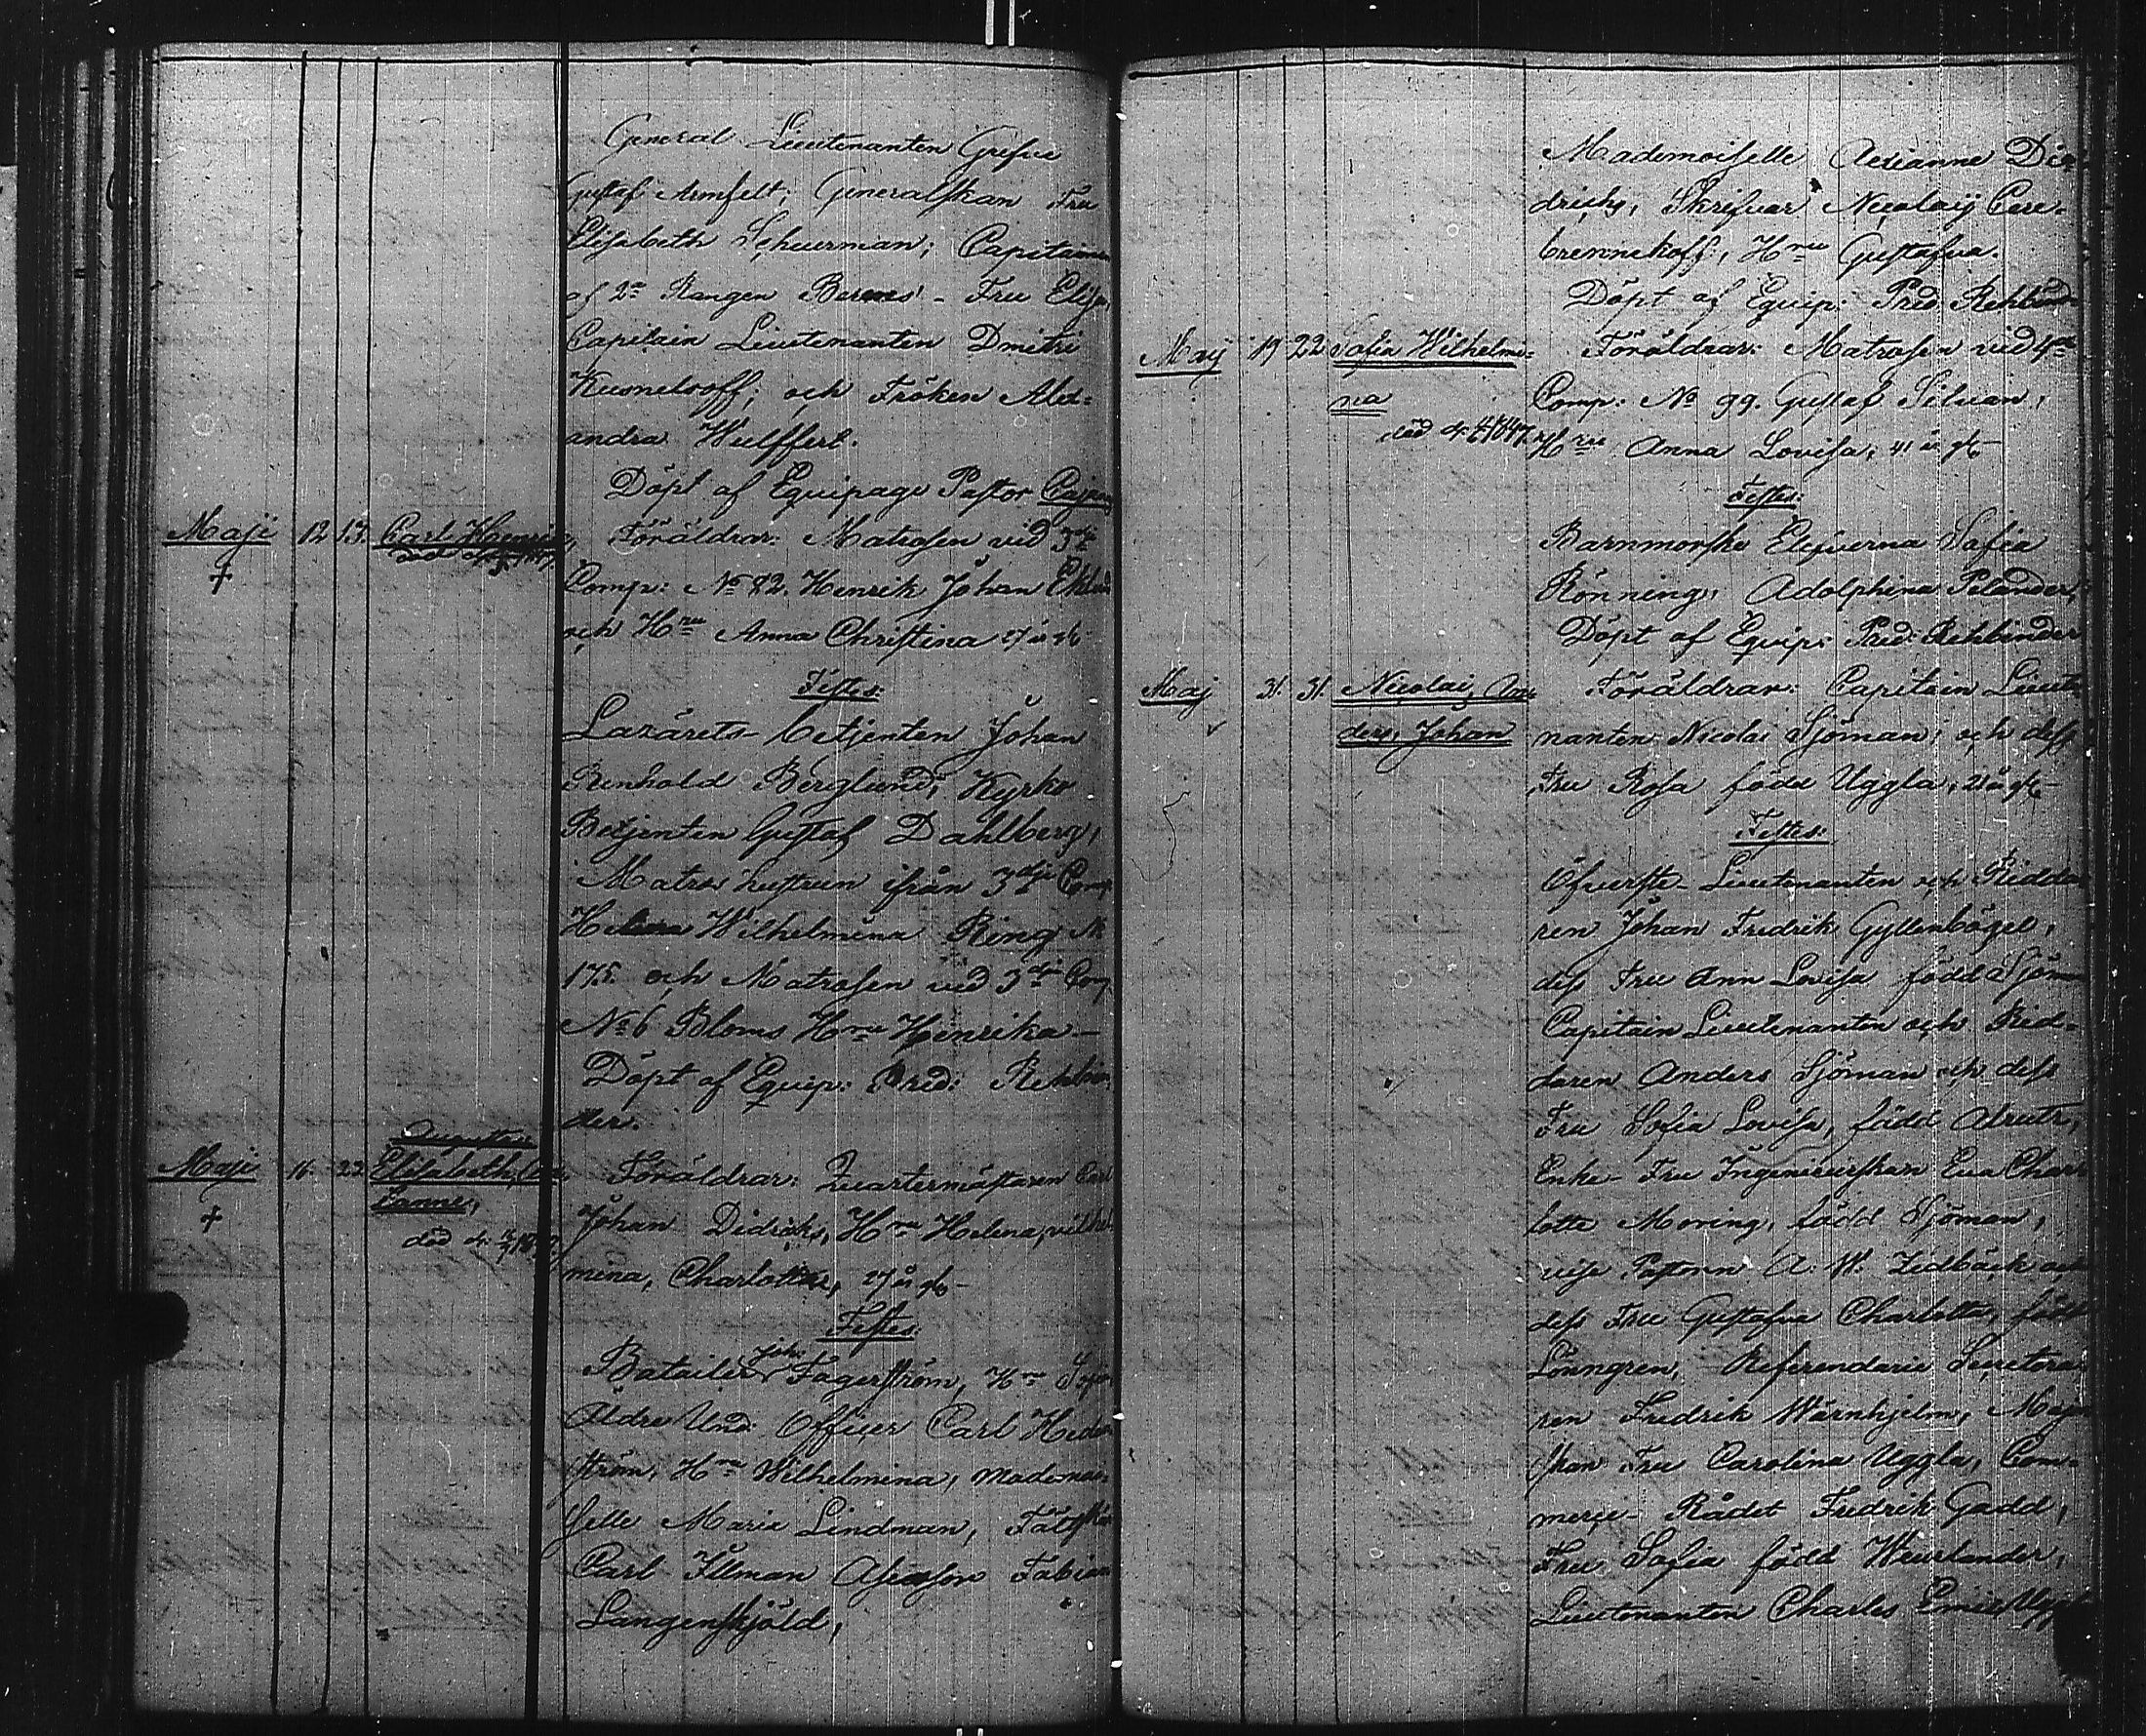 General Lieutenanten Grefve
Gustaf Armfelt; Generalskan Fru
Elisabeth Scheurman; Capitainen
af 2a Rangen - Fru Elise
Capitain Lieutenanten Dmitri
och Fröken Alex-
andra Wulffert.
Döpt af Equipage Pastor
Maji 12 13. Carl Henric,
död
Föräldrar: Matrosen vid 3dje
Comp: No 82. Henrik Johan Eklund
och Hru Anna Christina 27 år
Testes:
Lazarets-betjenten Johan
Renhold Berglund, Kyrko
Betjenten Gustaf Dahlberg,
Matros hustrun ifrån 3dje Comp
Helena Wilhelmina Ring No
175. och Matrosen vid 3dje Comp
No 6 Bloms Hru Henrika -
Döpt af Equip: Pred: Rehbin-
der.
Maji 16. 22. Augusta
Elisabeth,
död d.
Föräldrar: Quartermästaren Carl
Johan Didrichs, Hru Helena, Vilhel
mina, Charlotta, 27 år
Testes:
Joh:
Batailer Fagerström, Hru
Äldre Und: Officer Carl Heder
ström, Hru Wilhelmina, Mademoi-
selle Maria Lindman,
Carl Illman Fabian
Langenskjöld,
Mademoiselle Adrianne Die-
drichs, Skrifvar Nicolaij
Hru Gustafva.
Döpt af Equip: Pred. Rehbind
Maij 19 22 Sofia Wilhelmi-
na
död d. 1847.
Föräldrar: Matrosen vid 4de
Comp: No 99. Gustaf Silvan,
Hru Anna Lovisa, 41 år
Testes:
Barnmorske Eleverna Sofia
Rönning, Adolphina Pelander,
Döpt af Equip: Pred: Rehbinder
Maj 31. 31. Nicolai, An-
ders, Johan
Föräldrar: Capitain Lieute
nanten Nicolai Sjöman, och dess
Fru Rosa född Uggla, 21 år
Testes:
Öfverste-Lieutenanten och Ridda
ren Johan Fredrik Gyllenbögel,
dess Fru Ann Lovisa född Sjöman
Capitain Lieutenanten och Rid-
daren Anders Sjöman och dess
Fru Sofia Lovisa, född
Enke-Fru Ingenieurskan Eva Char
lotta Moring, född Sjöman,
vice Pastorn A. W. Lidbäck och
dess Fru Gustafva Charlotta, född
Lönngren, Referendarie Secretera
ren Fredrik Wärnhjelm, Major
skan Fru Carolina Uggla, Com-
mercie-Rådet Fredrik Gadd,
Fru Sofia född
Lieutenanten Charles Emil Uggla